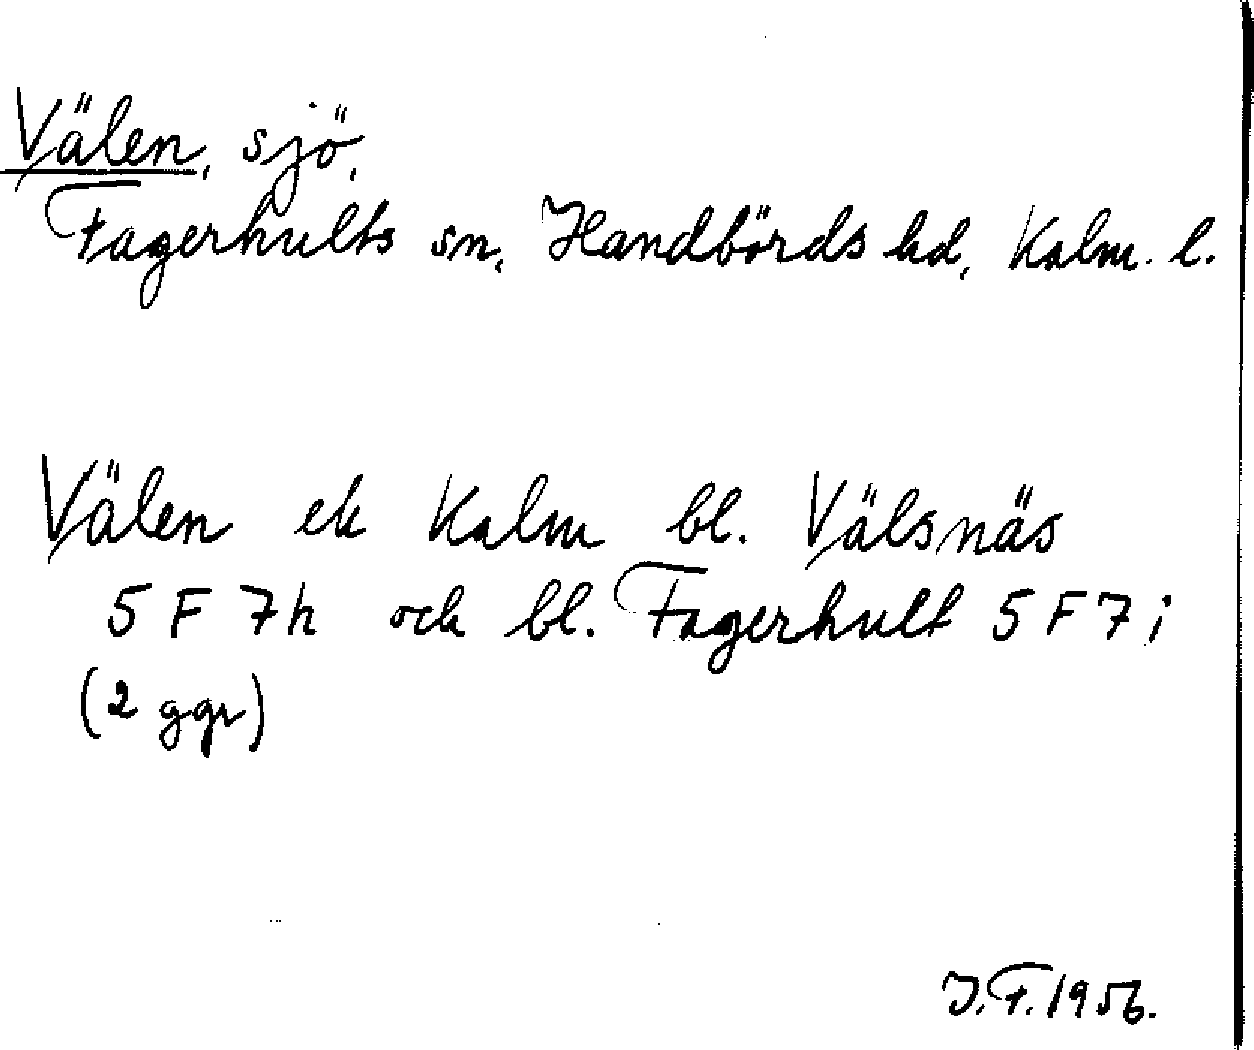 Välen, sjö,
Fagerhults sn, Handbörds hd, Kalm. l.
Välen ek Kalm bl. Välsnäs
5 F 7h och bl. Fagerhult 5 F 7i
(2 ggr)
J.F. 1956.